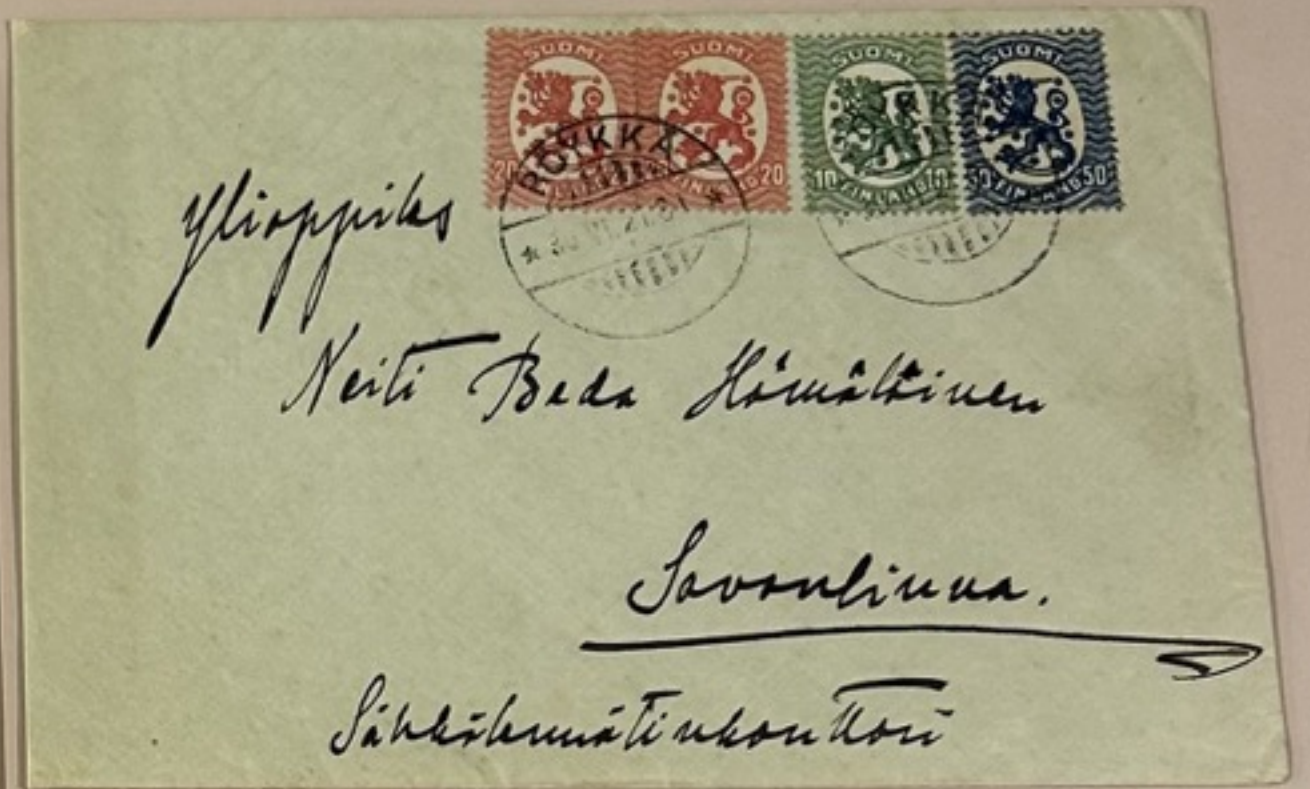 SUOMI SUOMI SUOMI SUOMI
20 FINLAND 20 10 FINLAND 10 FINLAND 50
RÖYKKÄ
Ylioppilas
Neiti Beda Hämäläinen
Savonlinna.
Sähkölennätinkonttori